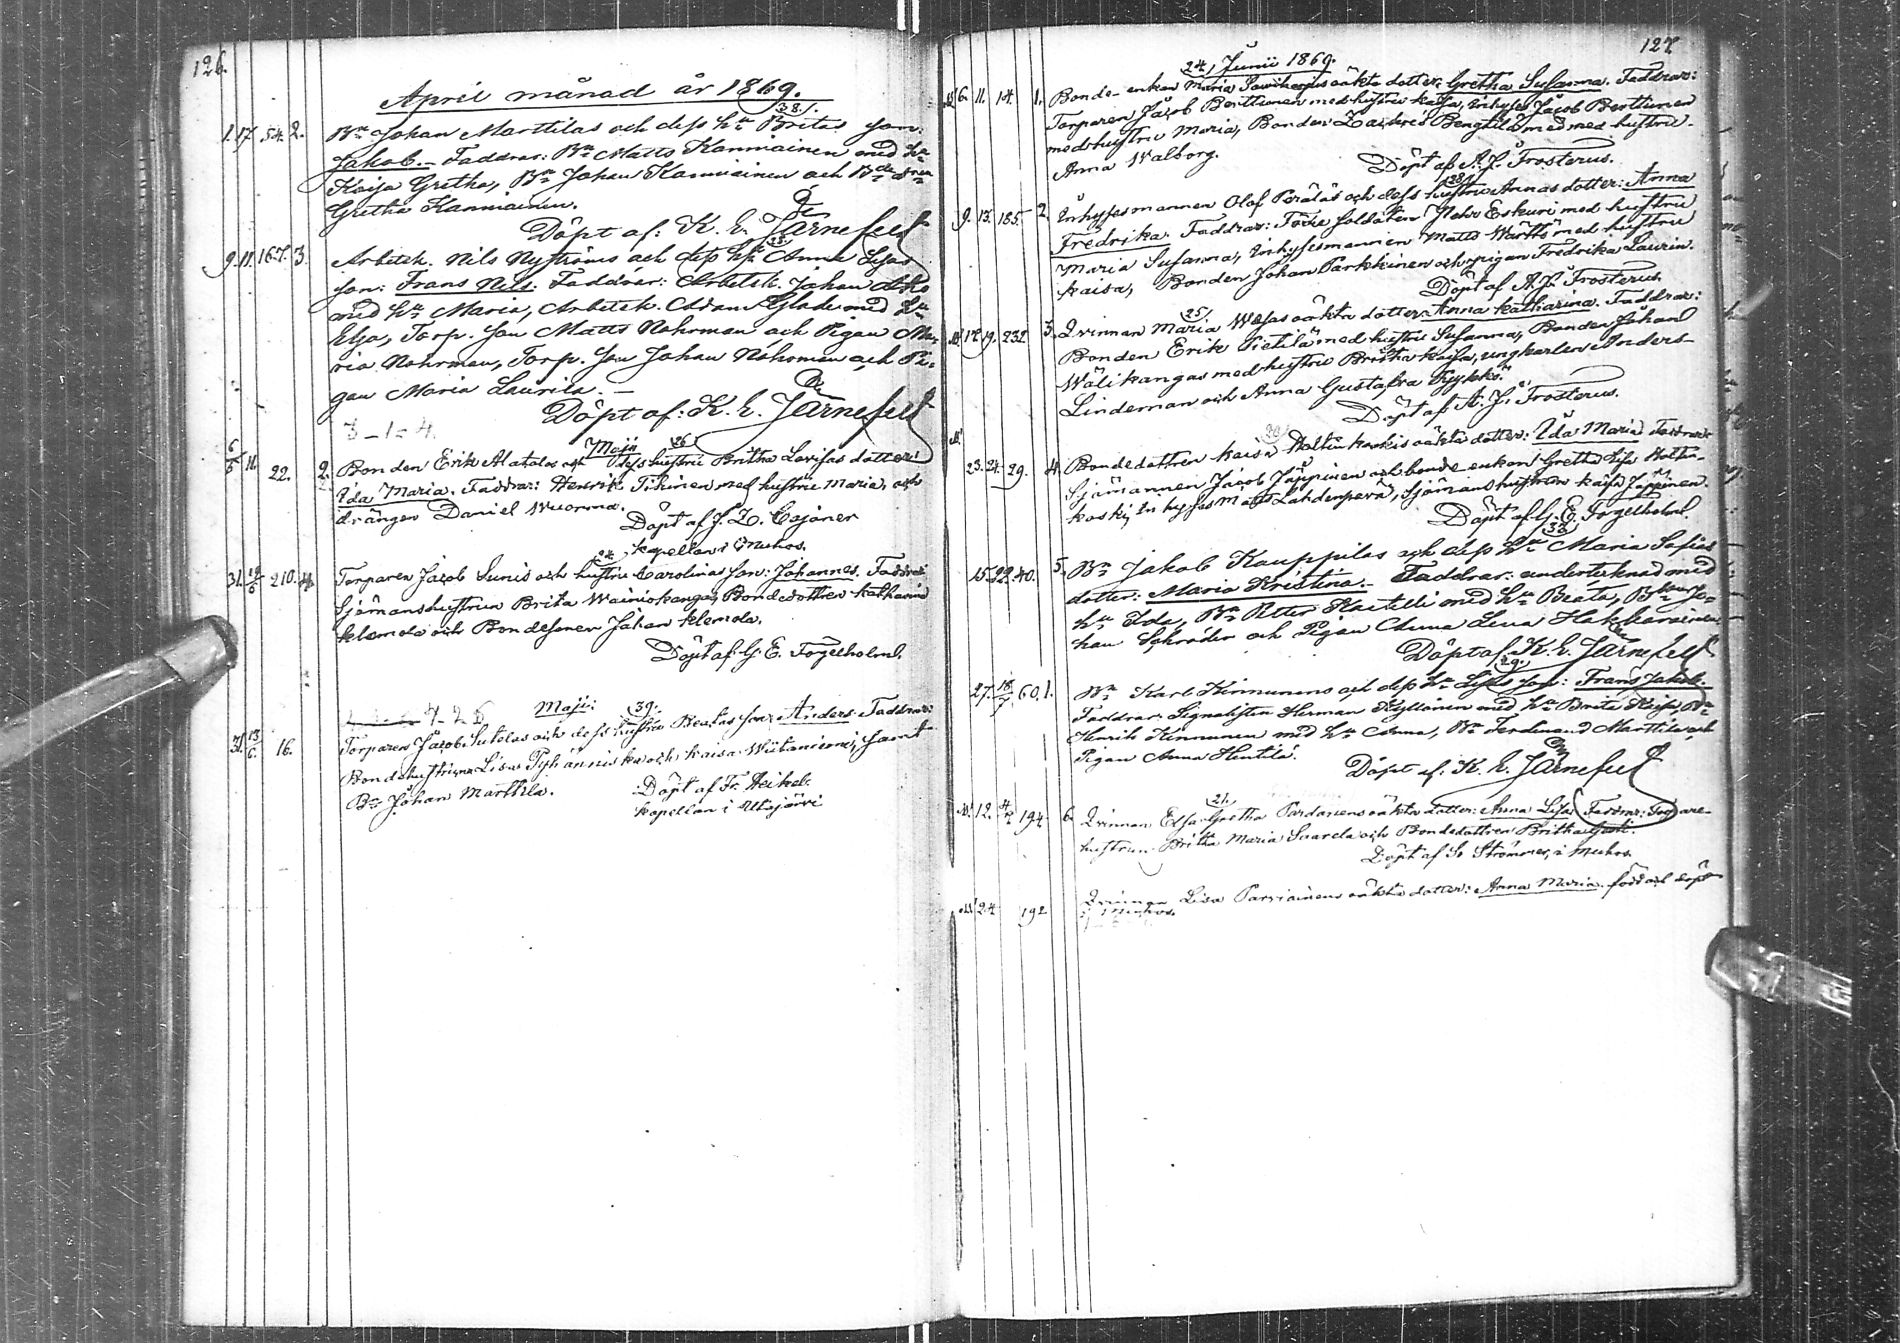 126.
April månad år 1869.
38.
1. 17. 54. 2. Bn Johan Marttilas och dess hu Britas son:
Jakob. – Faddrar: Bn Matts Kanniainen med hu
Kaisa Gretha, Bn Johan Kanniainen och Bdedren
Gretha Kanniainen.
Döpt af: K. E. Järnefelt
25.
9. 11. 167. 3. Arbetsk. Nils Nyströms och dess hu Anna Lisas
son: Frans Nils. Faddrar: Arbetsk. Johan
med hu Maria, Arbetsk. Adam Glade med hu
Elsa, Torp. son Matts Nohrman och Pigan Ma-
ria Nohrman, Torp. son Johan Nohrman och Pi-
gan Maria Laurila. –
Döpt af: K. E. Järnefelt
3 – 1 = 4.
Maji 26.
6/5 11. 22. 2. Bonden Erik Alatalos och dess hustru Britha Lovisas dotter:
Ida Maria. Faddrar: Henrik Tihinen med hustru Maria, och
drängen Daniel Wuorma.
Döpt af J. Z. Cajaner
kapellan i Muhos.
24.
31. 210. 4. Torparen Jacob Sunis och hustru Carolinas son: Johannes. Faddrar:
Sjömanshustrun Brita Wainiokangas, Bondedottren Katharina
Klemola och Bondesonen Johan Klemola.
Döpt af G. E. Fogelholm.
Maji: 39.
31. 13/6. 16. Torparen Jacob Sutelas och dess hustru Beatas son: Anders. Faddrar:
Bondehustrurna Lisa Pyhänniska och Kaisa Wiitaniemi, samt
Bn Johan Marttila.
Döpt af Fr. Heikel.
kapellan i Utajärvi
127.
24. Junii 1869.
6. 11. 14. 1. Bonde-enkan Maria oäkta dotter: Gretha Susanna. Faddrar:
Torparen Jacob Berttunen med hustru Kaisa, Inhyses Jacob Berttunen
med hustru Maria, Bonden Zachris Bengtilä med hustru
Anna Walborg.
Döpt af A. J. Frosterus.
28.
9. 13. 185. 2. Inhysesmannen Olof Peräläs och dess hustru Annas dotter: Anna
Fredrika. Faddrar: Förre soldaten Eskuri med hustru
Maria Susanna, Inhysesmannen Matts Warttö med hustru
Kaisa, Bonden Johan Parkkinen och pigan Fredrika Laurin.
Döpt af A. J. Frosterus.
25.
17. 19. 232. 3. Qvinnan Maria oäkta dotter: Anna Katharina. Faddrar:
Bonden Erik Pietilä med hustru Susanna, Bonden Johan
Wälikangas med hustru Britha Kaisa, ungkarlen Anders
Lindeman och Anna Gustafva Pyykkö.
Döpt af A. J. Frosterus.
23. 24. 29. 4. Bondedottren Kaisa Holtinkoskis oäkta dotter: Ida Maria. Faddrar:
Sjömannen Jacob Jäppinen och bonde enkan Gretha Lisa Holtin-
koski, Inhyses Matts Lahdenperä, Sjömanshustrun Kaisa Jäppinen.
Döpt af G. E. Fogelholm.
38.
15. 22. 40. 5. Bn Jakob Kauppilas och dess hu Maria Sofias
dotter: Maria Kristina. – Faddrar: undertecknad med
hu Ida, Bn Petter Kastelli med hu Beata, Jo-
han Schroder och Pigan Anna Lena Hakkarainen
Döpt af K. E. Järnefelt
29.
27. 18/7. 60. 1. Bn Karl Kinnunens och dess hu Lisas son: Frans Jakob.
Faddrar: Signalisten Herman Kyllönen med hu Brita Kaisa, Bn
Henrik Kinnunen med hu Anna, Bn Ferdinand Marttila och
Pigan Anna Hentilä.
Döpt af: K. E. Järnefelt
21.
12. 4/7. 194. 6. Qvinnan Elsa Gretha Pardanens oäkta dotter: Anna Lisa. Faddrar:
hustrun Britha Maria Saarela och Bondedottren Britha
Döpt af Strömmer, i Muhos.
24. 192 Qvinnan Lisa Parviainens oäkta dotter: Anna Maria. född och döpt
i Muhos.